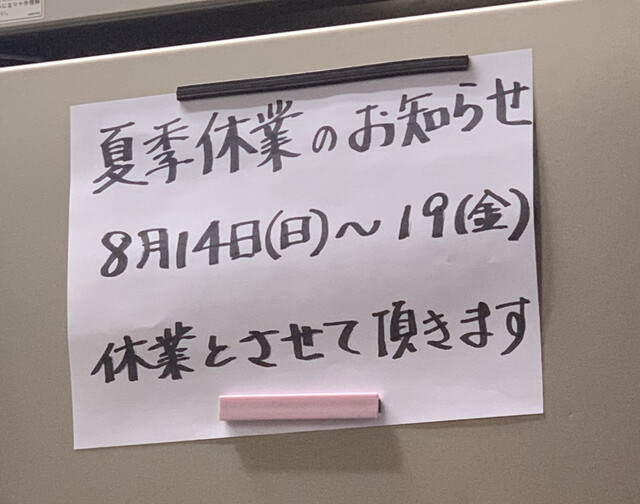 夏季休業のお知らせ
8月14日(日)～19(金)
休業とさせて頂きます